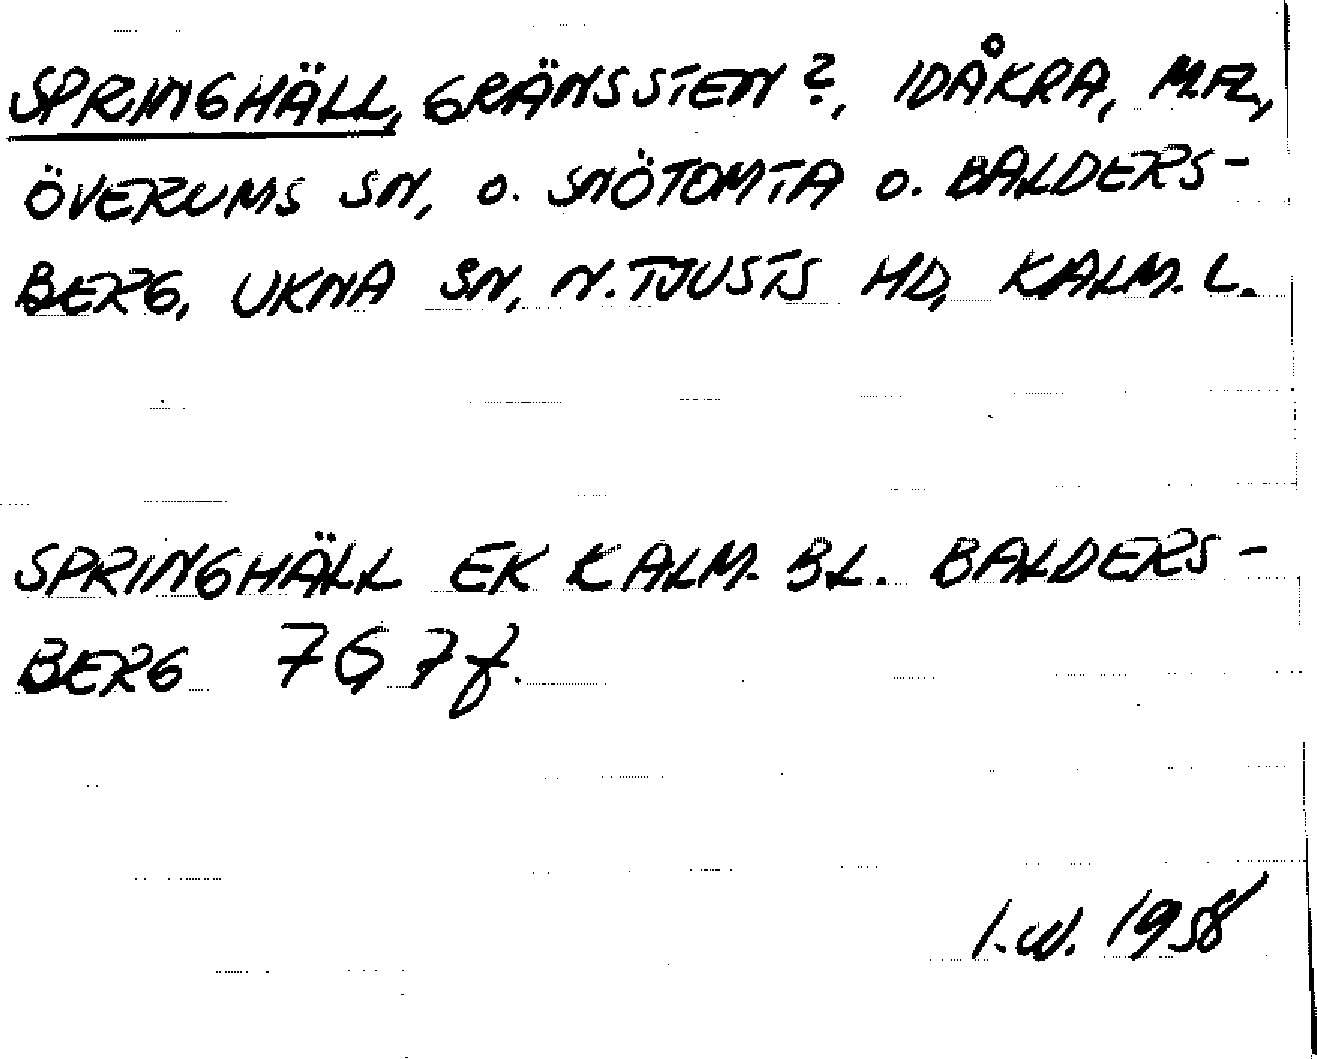 SPRINGHÄLL, GRÄNSSTEN?, IDÅKRA, M.FL.,
ÖVERUMS SN, O. SNÖTOMTA O. BALDERS-
BERG, UKNA SN, N. TJUSTS HD, KALM. L.
SPRINGHÄLL EK KALM. BL. BALDERS-
BERG 7G7f.
I.W. 1958